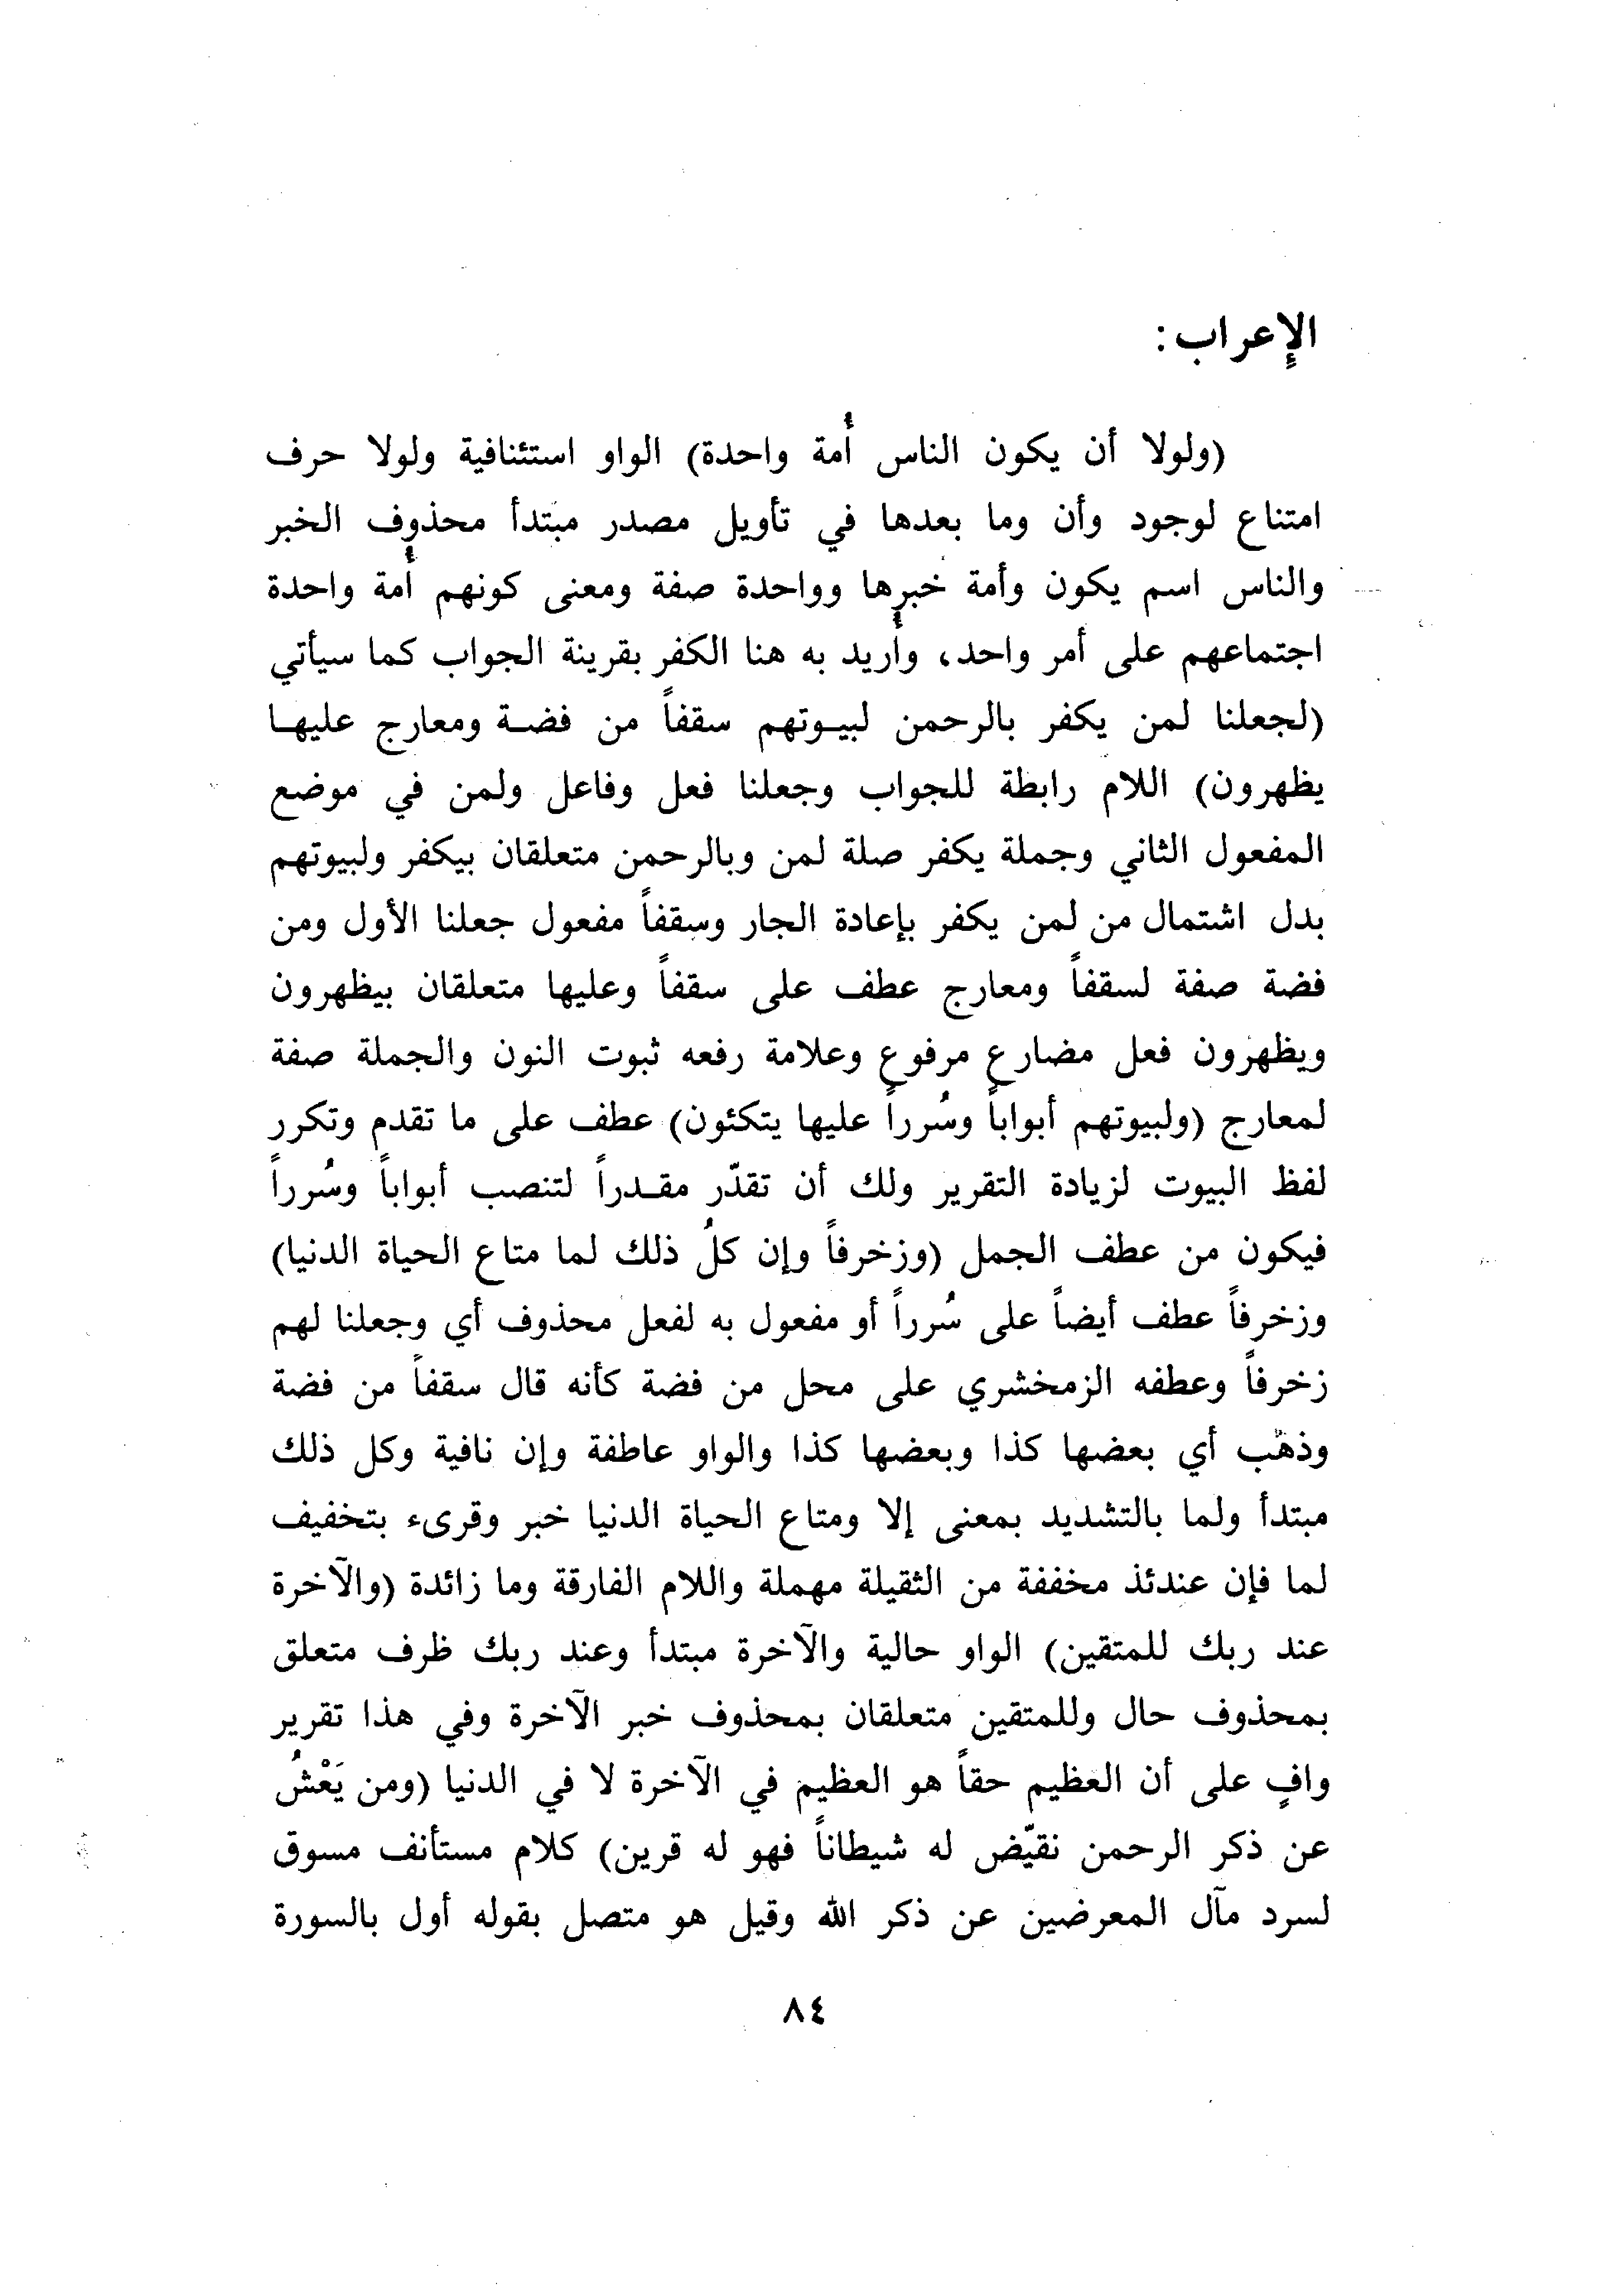 الإعراب :
(ولولا أن يكون الناس أُمة واحدة) الواو استئنافية ولولا حرف
امتناع لوجود وأن وما بعدها في تأويل مصدر مبتدأ محذوف الخبر
والناس اسم يكون وأمة خبرها وواحدة صفة ومعنى كونهم أُمة واحدة
اجتماعهم على أمر واحد، وأُريد به هنا الكفر بقرينة الجواب كما سيأتي
(لجعلنا لمن يكفر بالرحمن لبيـوتهم سقفاً من فضـة ومعارج عليهـا
يظهرون) اللام رابطة للجواب وجعلنا فعل وفاعل ولمن في موضع
المفعول الثاني وجملة يكفر صلة لمن وبالرحمن متعلقان بيكفر ولبيوتهم
بدل اشتمال من لمن يكفر بإعادة الجار وسقفاً مفعول جعلنا الأول ومن
فضة صفة لسقفاً ومعارج عطف على سقفاً وعليها متعلقان بيظهرون
ويظهرون فعل مضارع مرفوع وعلامة رفعه ثبوت النون والجملة صفة
لمعارج (ولبيوتهم أبواباً وسُرراً عليها يتكئون) عطف على ما تقدم وتكرر
لفظ البيوت لزيادة التقرير ولك أن تقدّر مقـدراً لتنصب أبواباً وسُرراً
فيكون من عطف الجمل (وزخرفاً وإن كلُ ذلك لما متاع الحياة الدنيا)
وزخرفاً عطف أيضاً على سُرراً أو مفعول به لفعل محذوف أي وجعلنا لهم
زخرفاً وعطفه الزمخشري على محل من فضة كأنه قال سقفاً من فضة
وذهب أي بعضها كذا وبعضها كذا والواو عاطفة وإن نافية وكل ذلك
مبتدأ ولما بالتشديد بمعنى إلا ومتاع الحياة الدنيا خبر وقرىء بتخفيف
لما فإن عندئذ مخففة من الثقيلة مهملة واللام الفارقة وما زائدة (والآخرة
عند ربك للمتقين) الواو حالية والآخرة مبتدأ وعند ربك ظرف متعلق
بمحذوف حال وللمتقين متعلقان بمحذوف خبر الآخرة وفي هذا تقرير
وافٍ على أن العظيم حقاً هو العظيم في الآخرة لا في الدنيا (ومن يَعْشُ
عن ذكر الرحمن نقيّض له شيطاناً فهو له قرين) كلام مستأنف مسوق
لسرد مآل المعرضين عن ذكر الله وقيل هو متصل بقوله أول بالسورة
٨٤